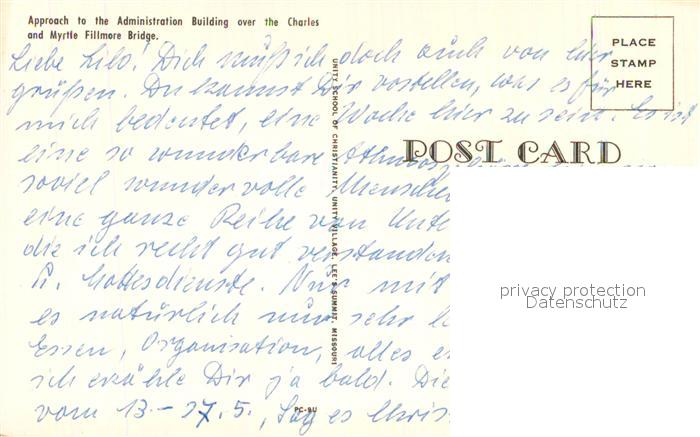 Approach to the Administration Building over the Charles
and Myrtle Fillmore Bridge.
PLACE
STAMP
HERE
POST CARD
UNITY SCHOOL OF CHRISTIANITY, UNITY VILLAGE, LEE'S SUMMIT, MISSOURI
PC-9U
Liebe Lilo! Dich muß ich doch auch von hier
grüßen. Du kannst Dir vorstellen, was es für
mich bedeutet, eine Woche hier zu sein. Es ist
eine so wunderbare
soviel wundervolle Menschen
eine ganze Reihe von
die ich recht gut verstanden
Gottesdienste. Nur mit
es natürlich nur sehr
Essen, Organisation, alles
ich erzähle Dir ja bald. Die
vom 13.-17.5., Sag es
privacy protection
Datenschutz